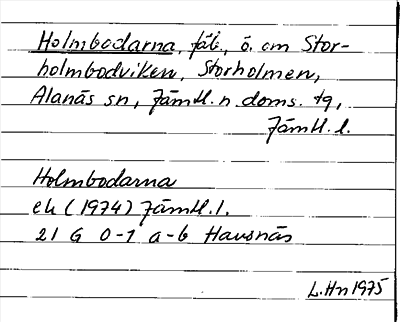 Holmbodarna, fäb, ö. om Stor-
holmbodviken, Storholmen,
Alanäs sn, Jämtl. n doms. tg,
Jämtl. l.
Holmbodarna
ek (1974) Jämtl. l.
21 G 0-1 a-b Havsnäs
L. Hn 1975